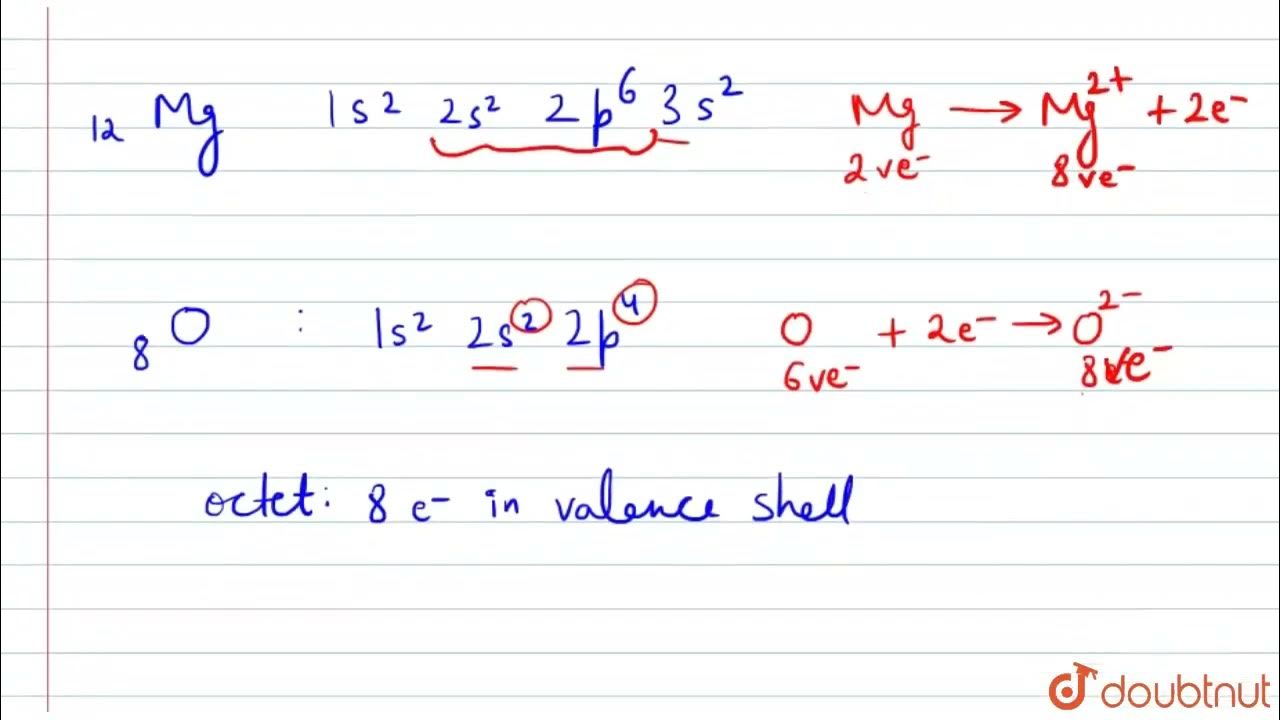 12 Mg 1s² 2s² 2p⁶ 3s² Mg → Mg²⁺ + 2e⁻
2ve⁻ 8ve⁻
8 O : 1s² 2s² 2p⁴ O + 2e⁻ → O²⁻
6ve⁻ 8ve⁻
octet: 8 e⁻ in valence shell
doubtnut